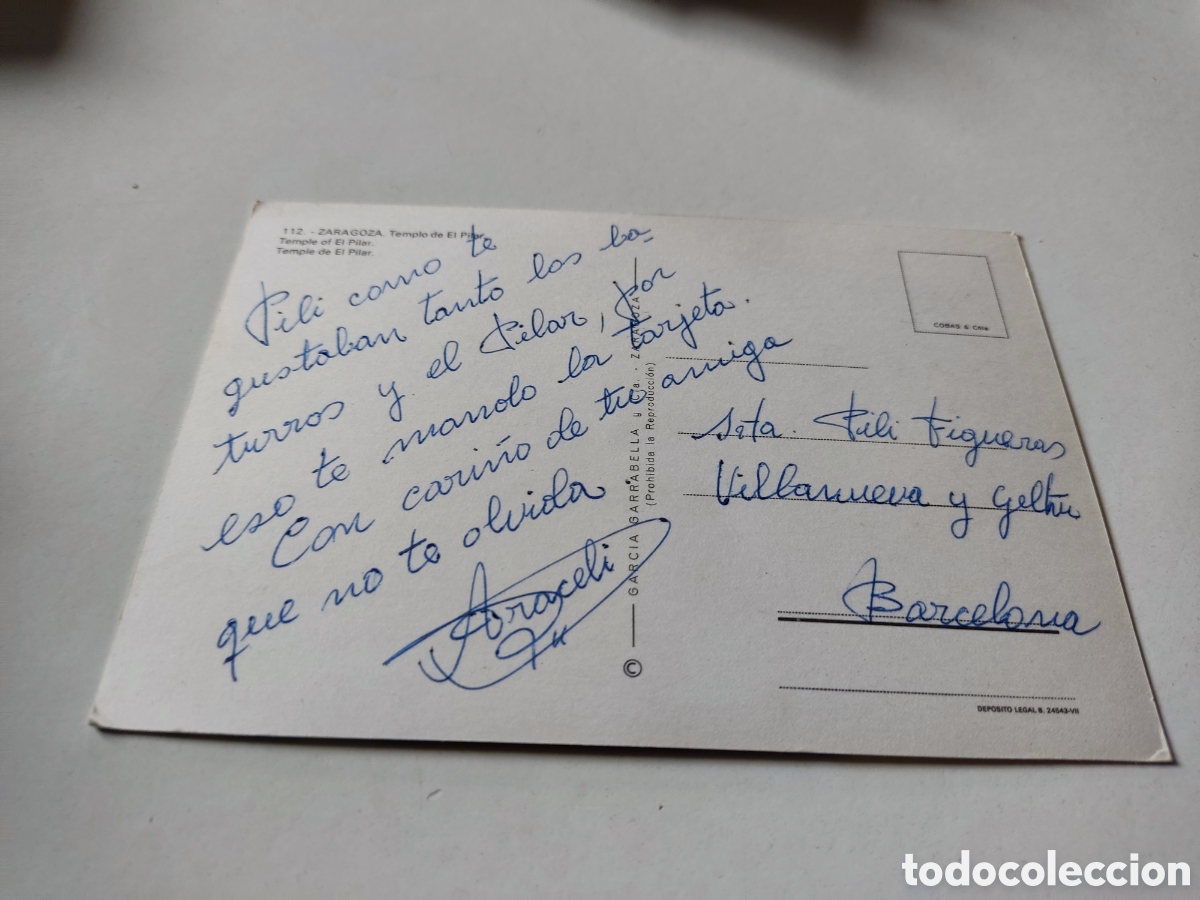 112. - ZARAGOZA. Templo de El Pilar.
Temple of El Pilar.
Temple de El Pilar.
Pili como te
gustaban tanto los ba-
turros y el Pilar, por
eso te mando la tarjeta.
Con cariño de tu amiga
que no te olvida.
Araceli
© GARCIA GARRABELLA y Cia. - ZARAGOZA
(Prohibida la Reproducción)
COBAS & Cia
Srta. Pili Figueras
Villanueva y Geltru
Barcelona
DEPOSITO LEGAL B. 24543-VII
todocoleccion